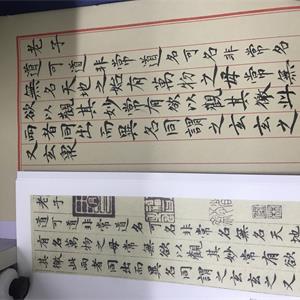 老子
道可道非常道名可名非常名
無名天地之始有萬物之母常無
欲以觀其妙常有欲以觀其徼此
兩者同出而異名同謂之玄玄之
又玄衆
老子
道可道非常道名可名非常名無名天地
有名萬物之母常無欲以觀其妙常有欲
其徼此兩者同出而異名同謂之玄之又